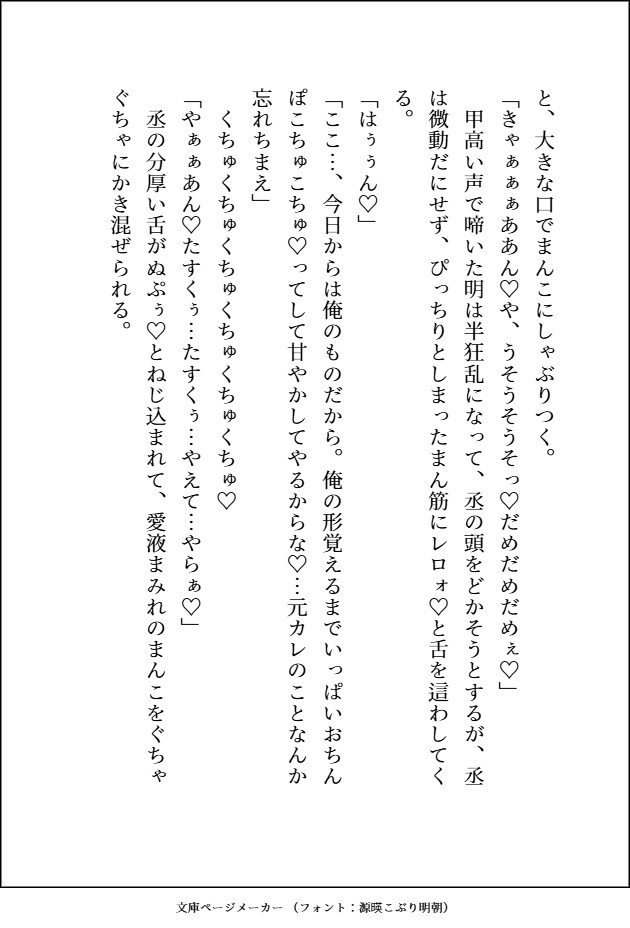 と、大きな口でまんこにしゃぶりつく。
「きゃぁぁぁああん♡や、うそうそうそっ♡だめだめだめぇ♡」
甲高い声で啼いた明は半狂乱になって、丞の頭をどかそうとするが、丞
は微動だにせず、ぴっちりとしまったまん筋にレロォ♡と舌を這わしてく
る。
「はぅぅん♡」
「ここ…、今日からは俺のものだから。俺の形覚えるまでいっぱいおちん
ぽこちゅこちゅ♡ってして甘やかしてやるからな♡…元カレのことなんか
忘れちまえ」
くちゅくちゅくちゅくちゅくちゅくちゅ♡
「やぁぁあん♡たすくぅ…たすくぅ…やえて…やらぁ♡」
丞の分厚い舌がぬぷぅ♡とねじ込まれて、愛液まみれのまんこをぐちゃ
ぐちゃにかき混ぜられる。
文庫ページメーカー（フォント：源暎こぶり明朝）